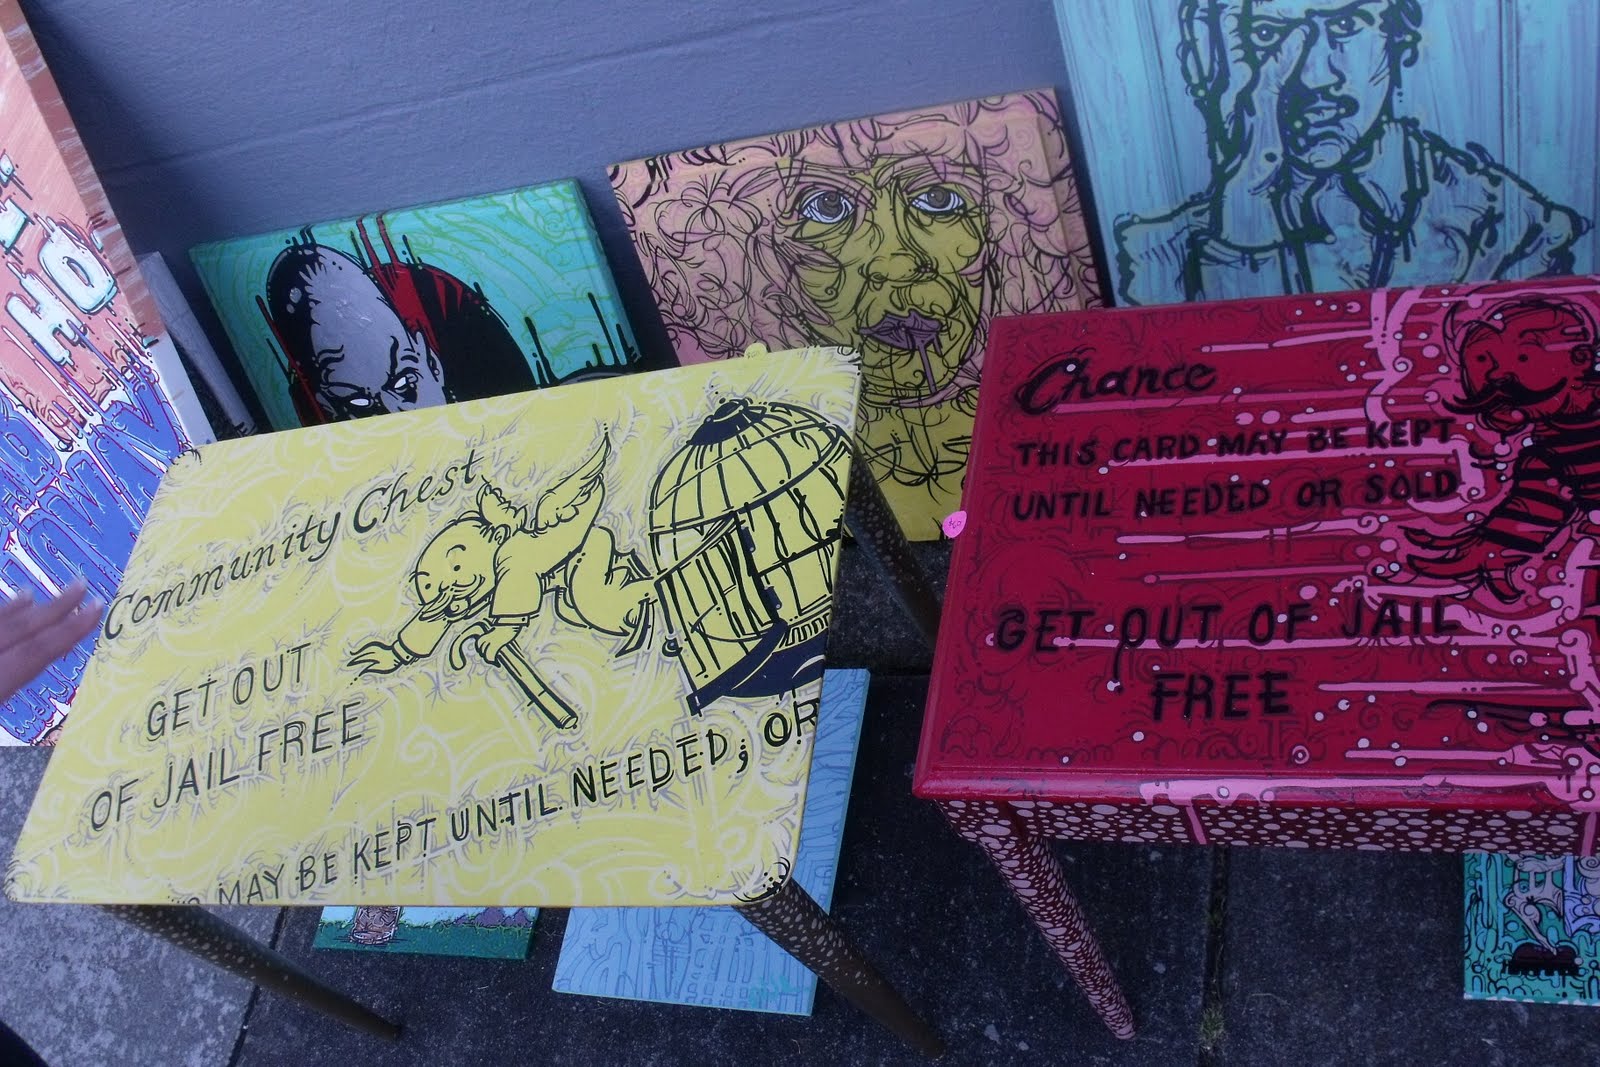 Community Chest
GET OUT
OF JAIL FREE
MAY BE KEPT UNTIL NEEDED, OR
Chance
THIS CARD MAY BE KEPT
UNTIL NEEDED OR SOLD
GET OUT OF JAIL
FREE